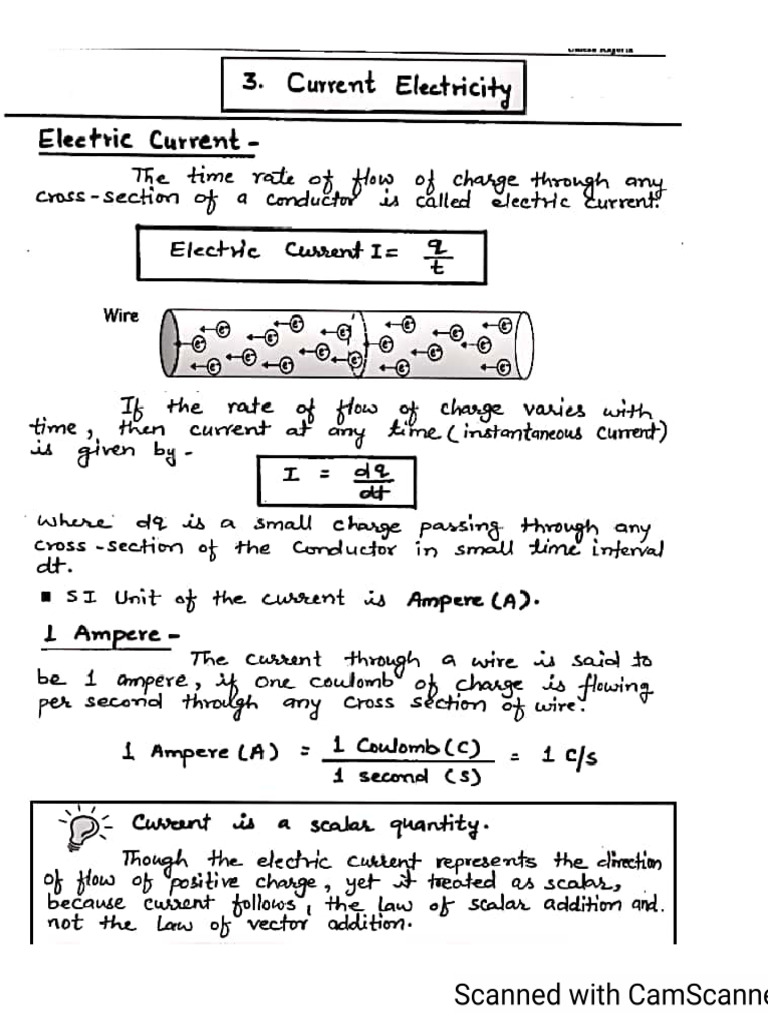 3. Current Electricity
Electric Current -
The time rate of flow of charge through any
cross-section of a conductor is called electric current.
Electric Current I = q/t
Wire
e⁻ e⁻ e⁻ e⁻ e⁻ e⁻ e⁻ e⁻ e⁻ e⁻ e⁻ e⁻ e⁻ e⁻ e⁻ e⁻ e⁻ e⁻
If the rate of flow of charge varies with
time, then current at any time (instantaneous current)
is given by -
I = dq/dt
where dq is a small charge passing through any
cross-section of the conductor in small time interval
dt.
▪ SI Unit of the current is Ampere (A).
1 Ampere -
The current through a wire is said to
be 1 ampere, if one coulomb of charge is flowing
per second through any cross section of wire.
1 Ampere (A) = 1 Coulomb (C) / 1 second (S) = 1 C/s
Current is a scalar quantity.
Though the electric current represents the direction
of flow of positive charge, yet it treated as scalar,
because current follows, the law of scalar addition and.
not the law of vector addition.
Scanned with CamScanne